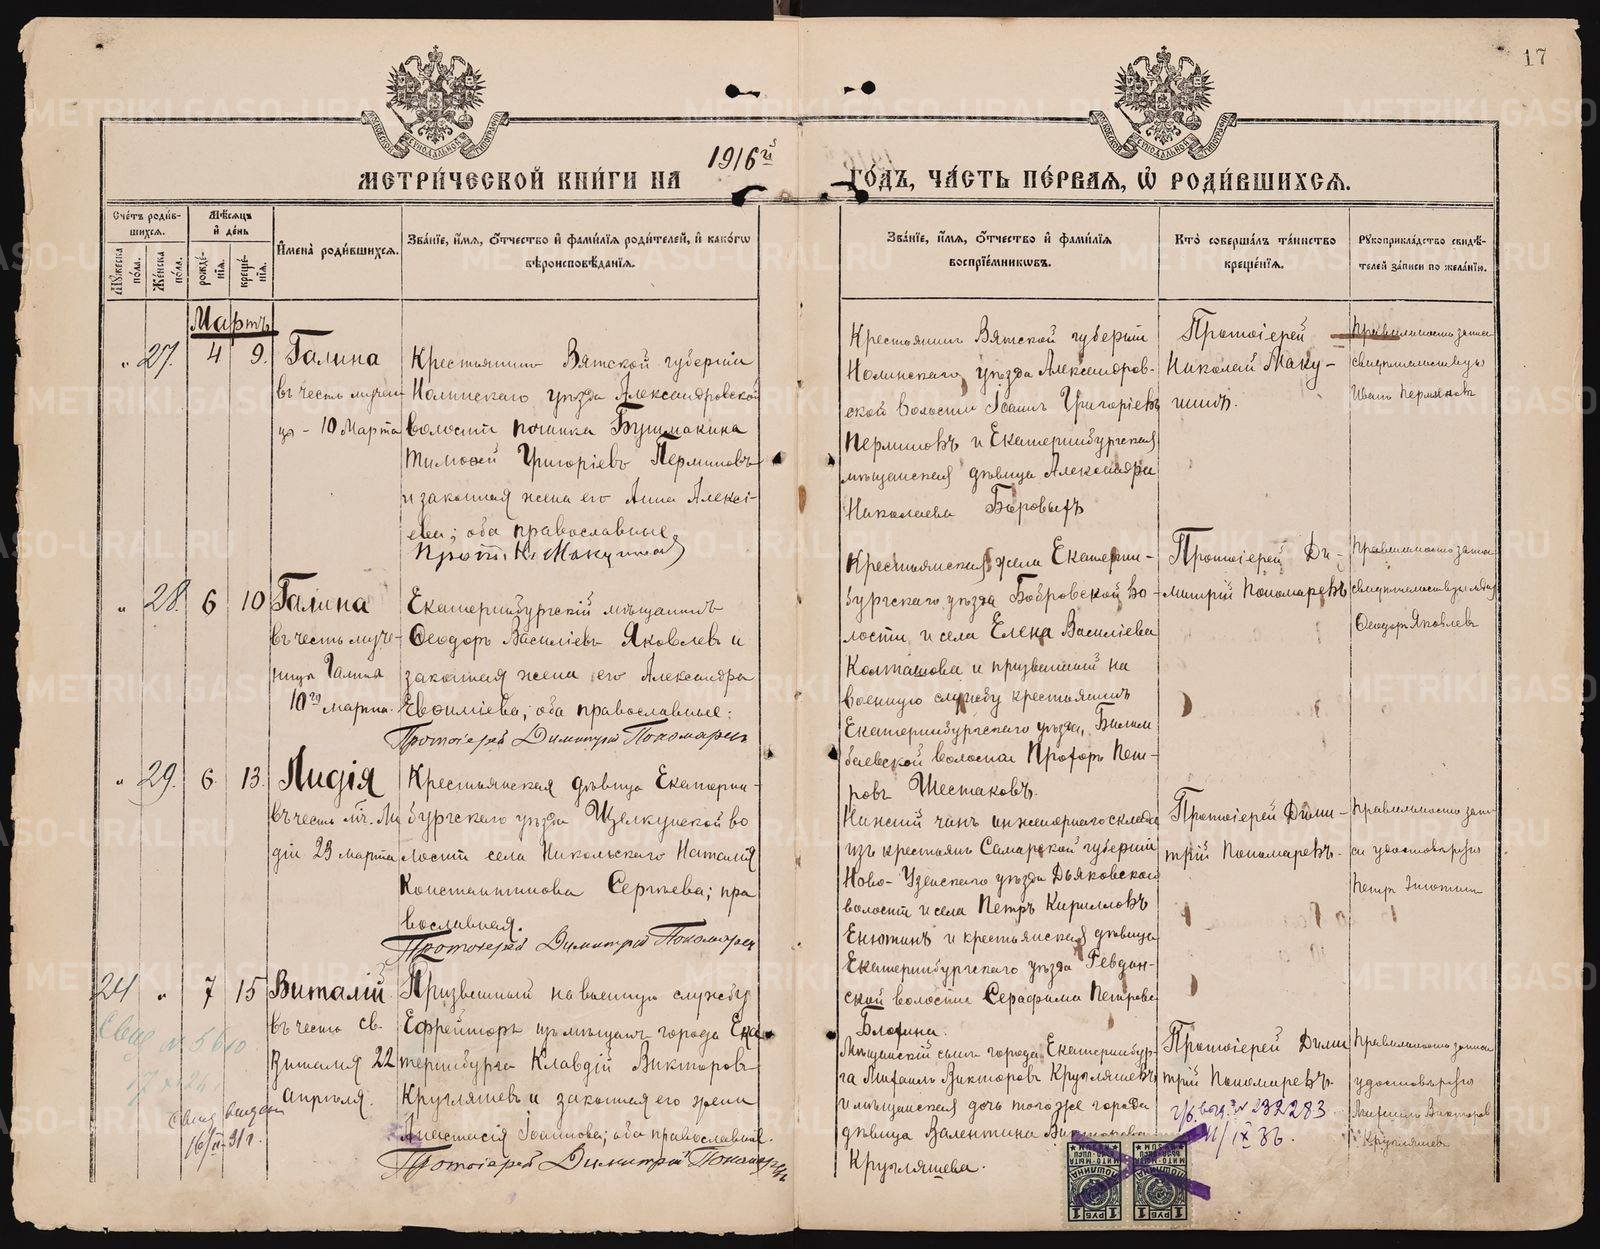 17
1916 г.
МЕТРИ́ЧЕСКОЙ КНИ́ГИ НА
ГО́ДЪ, ЧА́СТЬ ПЕ́РВАЯ, Ѡ РОДИ́ВШИХСЯ.
Сче́тъ роди́в-
шихся.
Му́жеска по́ла.
Же́нска по́ла.
Мѣ́сяцъ
и́ де́нь
рожде́-
нія.
креще́-
нія.
И́мена̀ роди́вшихся.
Зва́нїе, и́мя, о́тчество и́ фами́лїя роди́телей, и́ како́гѡ
вѣроисповѣ́данїя.
Зва́нїе, и́мя, о́тчество и́ фами́лїя
воспрїе́мникѡвъ.
Кто̀ соверша́лъ та́инство
креще́нїя.
Рꙋкоприкла́дство свидѣ́-
телей за́писи по жела́нїю.
Мартъ
" 27. 4 9.
Галина
въ честь мучени
цы - 10 Марта
Крестьянинъ Вятской губерніи
Нолинскаго уѣзда Александровской
волости починка Бушмакина
Тимоѳей Григоріевъ Перминовъ
и законная жена его Анна Алексі-
ева; оба православные
Прот. Н. Макушинъ
Крестьянинъ Вятской губерніи
Нолинскаго уѣзда Александров-
ской волости Іоаннъ Григоріевъ
Перминовъ и Екатеринбургская
мѣщанская дѣвица Александра
Николаева Боровыхъ
Протоіерей
Николай Маку-
шинъ.
Правильность записи
свидѣтельствую
Иванъ Перминовъ
" 28. 6 10
Галина
въ честь муче-
ницы Галины
10го марта.
Екатеринбургскій мѣщанинъ
Ѳеодоръ Василіевъ Яковлевъ и
законная жена его Александра
Евѳиміева; оба православные:
Протоіерей Димитрій Пономаревъ
Крестьянская жена Екатерин-
бургскаго уѣзда Бобровской во-
лости и села Елена Василіева
Колташова и призванный на
военную службу крестьянинъ
Екатеринбургскаго уѣзда, Билим
баевской волости Прохоръ Пет-
ровъ Шестаковъ.
Протоіерей Ди-
митрій Пономаревъ
Правильность записи
свидѣтельствую
Ѳеодоръ Яковлевъ
" 29. 6. 13.
Лидія
въ честь мч. Ли
діи 23 марта
Крестьянская дѣвица Екатерин-
бургскаго уѣзда Щелкунской во
лости села Никольскаго Наталія
Константинова Сергѣева; пра
вославная.
Протоіерей Димитрій Пономаревъ
Нижній чинъ инженернаго склада
изъ крестьянъ Самарской губерніи
Ново-Узенскаго уѣзда Дьяковской
волости и села Петръ Кирилловъ
Енютинъ и крестьянская дѣвица
Екатеринбургскаго уѣзда Ревдин-
ской волости Серафима Петрова
Блохина.
Протоіерей Дими-
трій Пономаревъ.
Правильность запи-
си удостовѣряю
Петръ Енютинъ
24 " 7 15
Виталій
въ честь св.
Виталія 22
апрѣля.
Призванный на военную службу
Ефрейторъ изъ мѣщанъ города Ека
теринбурга Клавдій Викторовъ
Кругляшевъ и законная его жена
Анастасія Іоаннова; оба православные.
Протоіерей Димитрій Пономаревъ
Мѣщанскій сынъ города Екатеринбур-
га Михаилъ Викторовъ Кругляшевъ
и мѣщанская дочь того же города
дѣвица Валентина Викторова
Кругляшева.
Протоіерей Дими
трій Пономаревъ.
Правильность записи
удостовѣряю
Михаилъ Викторов
Кругляшев
Свид № 5610
Свид выдан
16/II-31 г.
№ 232283
11/IX 36.
1 РУБ 1
1 РУБ 1
METRIKI.GASO-URAL.RU